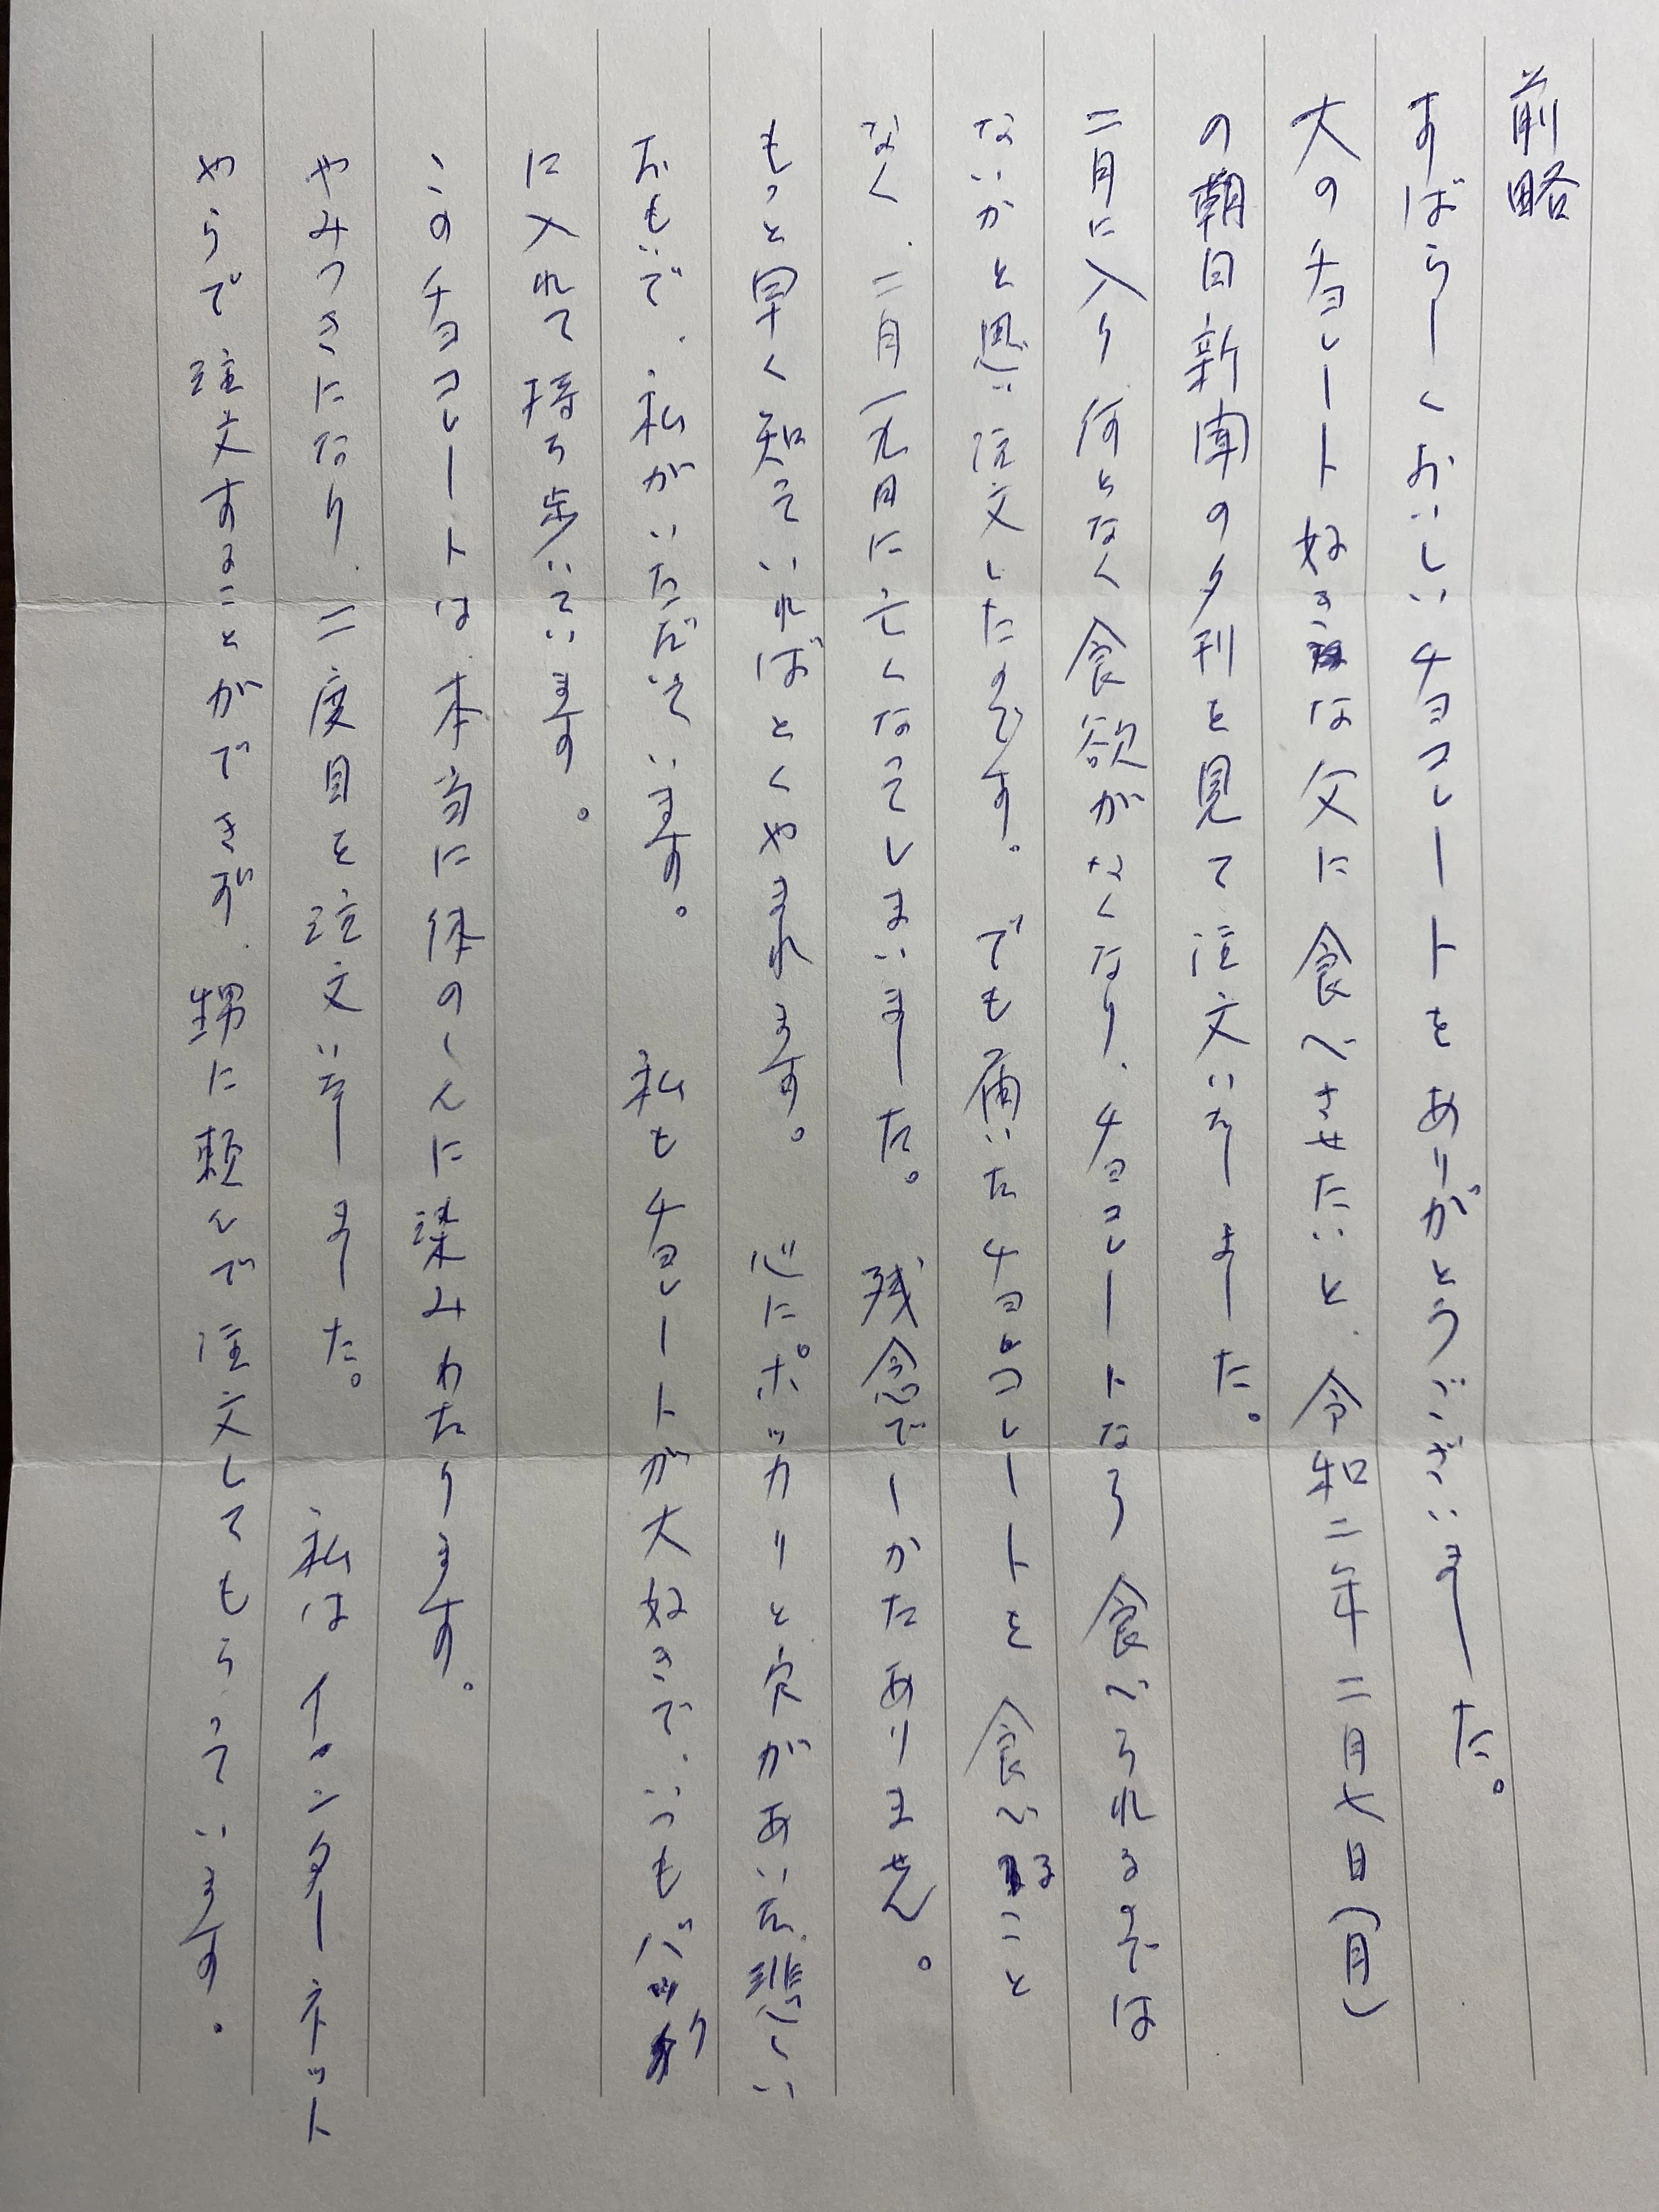 前略
すばらしくおいしいチョコレートをありがとうございました。
大のチョレート好きな父に食べさせたいと、令和二年二月七日(月)
の朝日新聞の夕刊を見て注文いたしました。
二月に入り何となく食欲がなくなり、チョコレートなら食べられるのでは
ないかと思い注文したのです。でも届いたチョコレートを食べることなく、
二月一九日に亡くなってしまいました。残念でしかたありません。
もっと早く知っていればとくやまれます。心にポッカリと穴があいた悲しい
おもいで、私がいただいています。私もチョレートが大好きで、いつもバッグ
に入れて持ち歩いています。
このチョコレートは本当に体のしんに染みわたります。
やみつきになり、二度目を注文いたしました。私はインターネット
やらで注文することができず、甥に頼んで注文してもらっています。